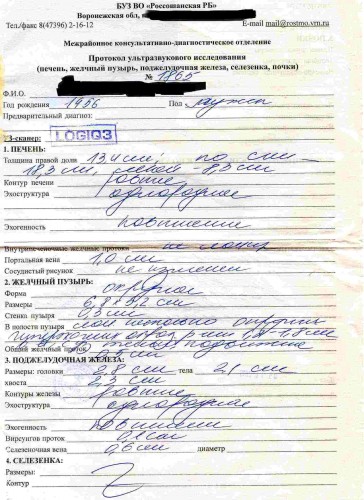 БУЗ ВО «Россошанская РБ»
Воронежская обл,
Тел./факс 8(47396) 2-16-12 E-mail mail@rostmo.vrn.ru
Межрайонное консультативно-диагностическое отделение
Протокол ультразвукового исследования
(печень, желчный пузырь, поджелудочная железа, селезенка, почки)
№ 1865
Ф.И.О.
Год рождения 1956 Пол мужск
Предварительный диагноз:
УЗ-сканер: LOGIQ3
1. ПЕЧЕНЬ:
Толщина правой доли 13,4 см, по
18,3 см, левой 8,3 см
Контур печени ровные
Эхоструктура однородная
Эхогенность повышена
Внутрипеченочные желчные протоки не
Портальная вена 1,0 см
Сосудистый рисунок не изменен
2. ЖЕЛЧНЫЙ ПУЗЫРЬ:
Форма округлая
Размеры 6,8 х 3,2 см
Стенка пузыря 0,3 см
В полости пузыря
Общий желчный проток см
3. ПОДЖЕЛУДОЧНАЯ ЖЕЛЕЗА:
Размеры: головки 2,8 см тела 2,1 см
хвоста 2,3 см
Контуры железы ровные
Эхоструктура однородная
Эхогенность повышена
Вирсунгов проток 0,1 см
Селезеночная вена 0,6 см диаметр
4. СЕЛЕЗЕНКА:
Размеры:
Контур